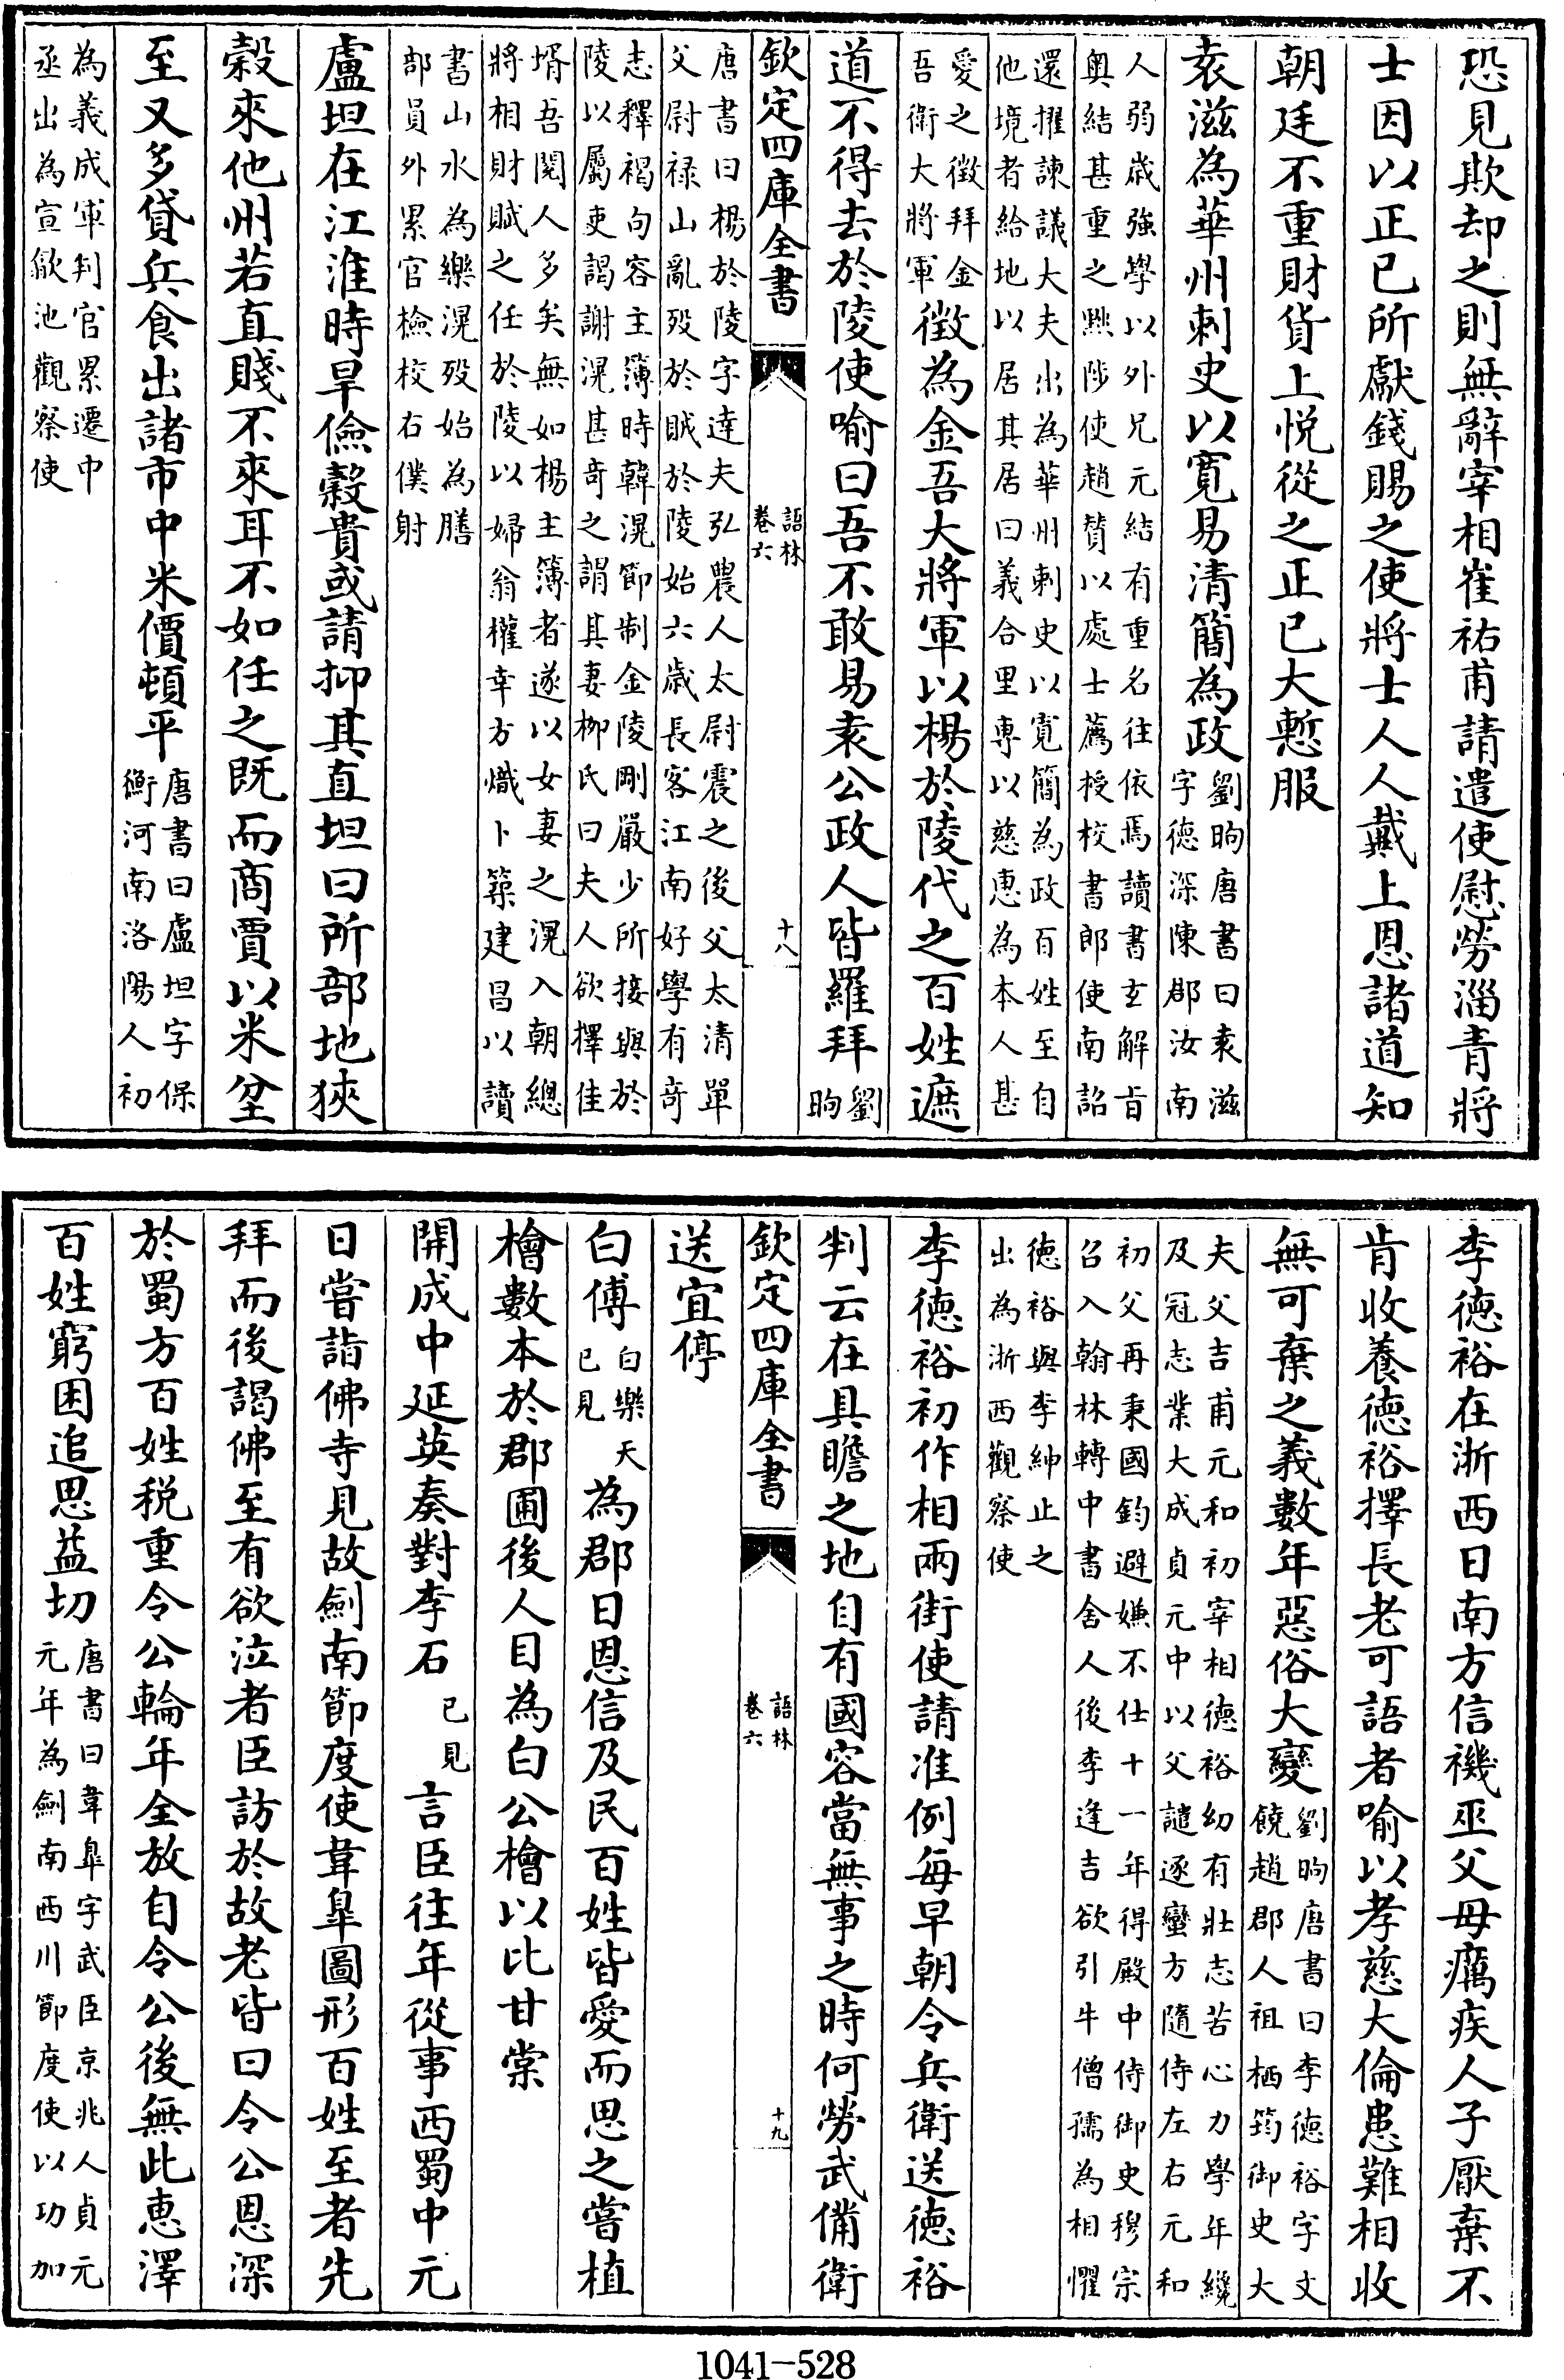 恐見欺却之則無辭宰相崔祐甫請遣使慰勞淄青將
士因以正已所獻錢賜之使將士人人戴上恩諸道知
朝廷不重財貨上悦從之正已大慙服
袁滋為華州刺史以寛易清簡為政劉昫唐書曰袁滋
字德深陳郡汝南
人弱歳強學以外兄元結有重名往依焉讀書玄解旨
奥結甚重之黜陟使趙贊以處士薦授校書郎使南詔
還擢諫議大夫出為華州刺史以寛簡為政百姓至自
他境者給地以居其居曰義合里専以慈惠為本人甚
愛之徴拜金
吾衛大將軍
徴為金吾大將軍以楊於陵代之百姓遮
道不得去於陵使喻曰吾不敢易袁公政人皆羅拜劉
昫
欽定四庫全書
語林
卷六
十八
唐書曰楊於陵字達夫弘農人太尉震之後父太清單
父尉禄山亂殁於賊於陵始六歳長客江南好學有奇
志釋褐句容主簿時韓滉節制金陵剛嚴少所接與於
陵以屬吏謁謝滉甚奇之謂其妻柳氏曰夫人欲擇佳
壻吾閲人多矣無如楊主簿者遂以女妻之滉入朝總
將相財賦之任於陵以婦翁權幸方熾卜築建昌以讀
書山水為樂滉殁始為膳
部員外累官檢校右僕射
盧坦在江淮時旱儉穀貴或請抑其直坦曰所部地狹
穀來他州若直賤不來耳不如任之既而商賈以米坌
至又多貸兵食出諸市中米價頓平唐書曰盧坦字保
衡河南洛陽人初
為義成軍判官累遷中
丞出為宣歙池觀察使
李德裕在浙西日南方信禨巫父母癘疾人子厭棄不
肯收養德裕擇長老可語者喻以孝慈大倫患難相收
無可棄之義數年惡俗大變劉昫唐書曰李德裕字文
饒趙郡人祖栖筠御史大
夫父吉甫元和初宰相德裕幼有壯志苦心力學年纔
及冠志業大成貞元中以父譴逐蠻方隨侍左右元和
初父再秉國鈞避嫌不仕十一年得殿中侍御史穆宗
召入翰林轉中書舍人後李逢吉欲引牛僧孺為相懼
德裕與李紳止之
出為浙西觀察使
李德裕初作相兩街使請准例每早朝令兵衛送德裕
判云在具瞻之地自有國容當無事之時何勞武備衛
欽定四庫全書
語林
卷六
十九
送宜停
白傅白樂天
已見
為郡日恩信及民百姓皆愛而思之嘗植
檜數本於郡圃後人目為白公檜以比甘棠
開成中延英奏對李石已見言臣往年從事西蜀中元
日嘗詣佛寺見故劍南節度使韋臯圖形百姓至者先
拜而後謁佛至有欲泣者臣訪於故老皆曰令公恩深
於蜀方百姓税重令公輪年全放自令公後無此惠澤
百姓窮困追思益切唐書曰韋臯字武臣京兆人貞元
元年為劍南西川節度使以功加
1041-528